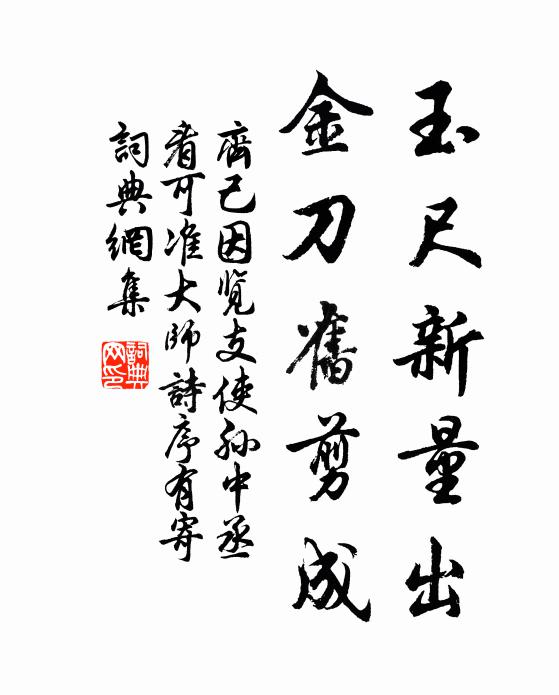 玉尺新量出
金刀舊剪成
齊己因覧支使孙中丞
看可准大師詩序有寄
詞典網集
詞典网印